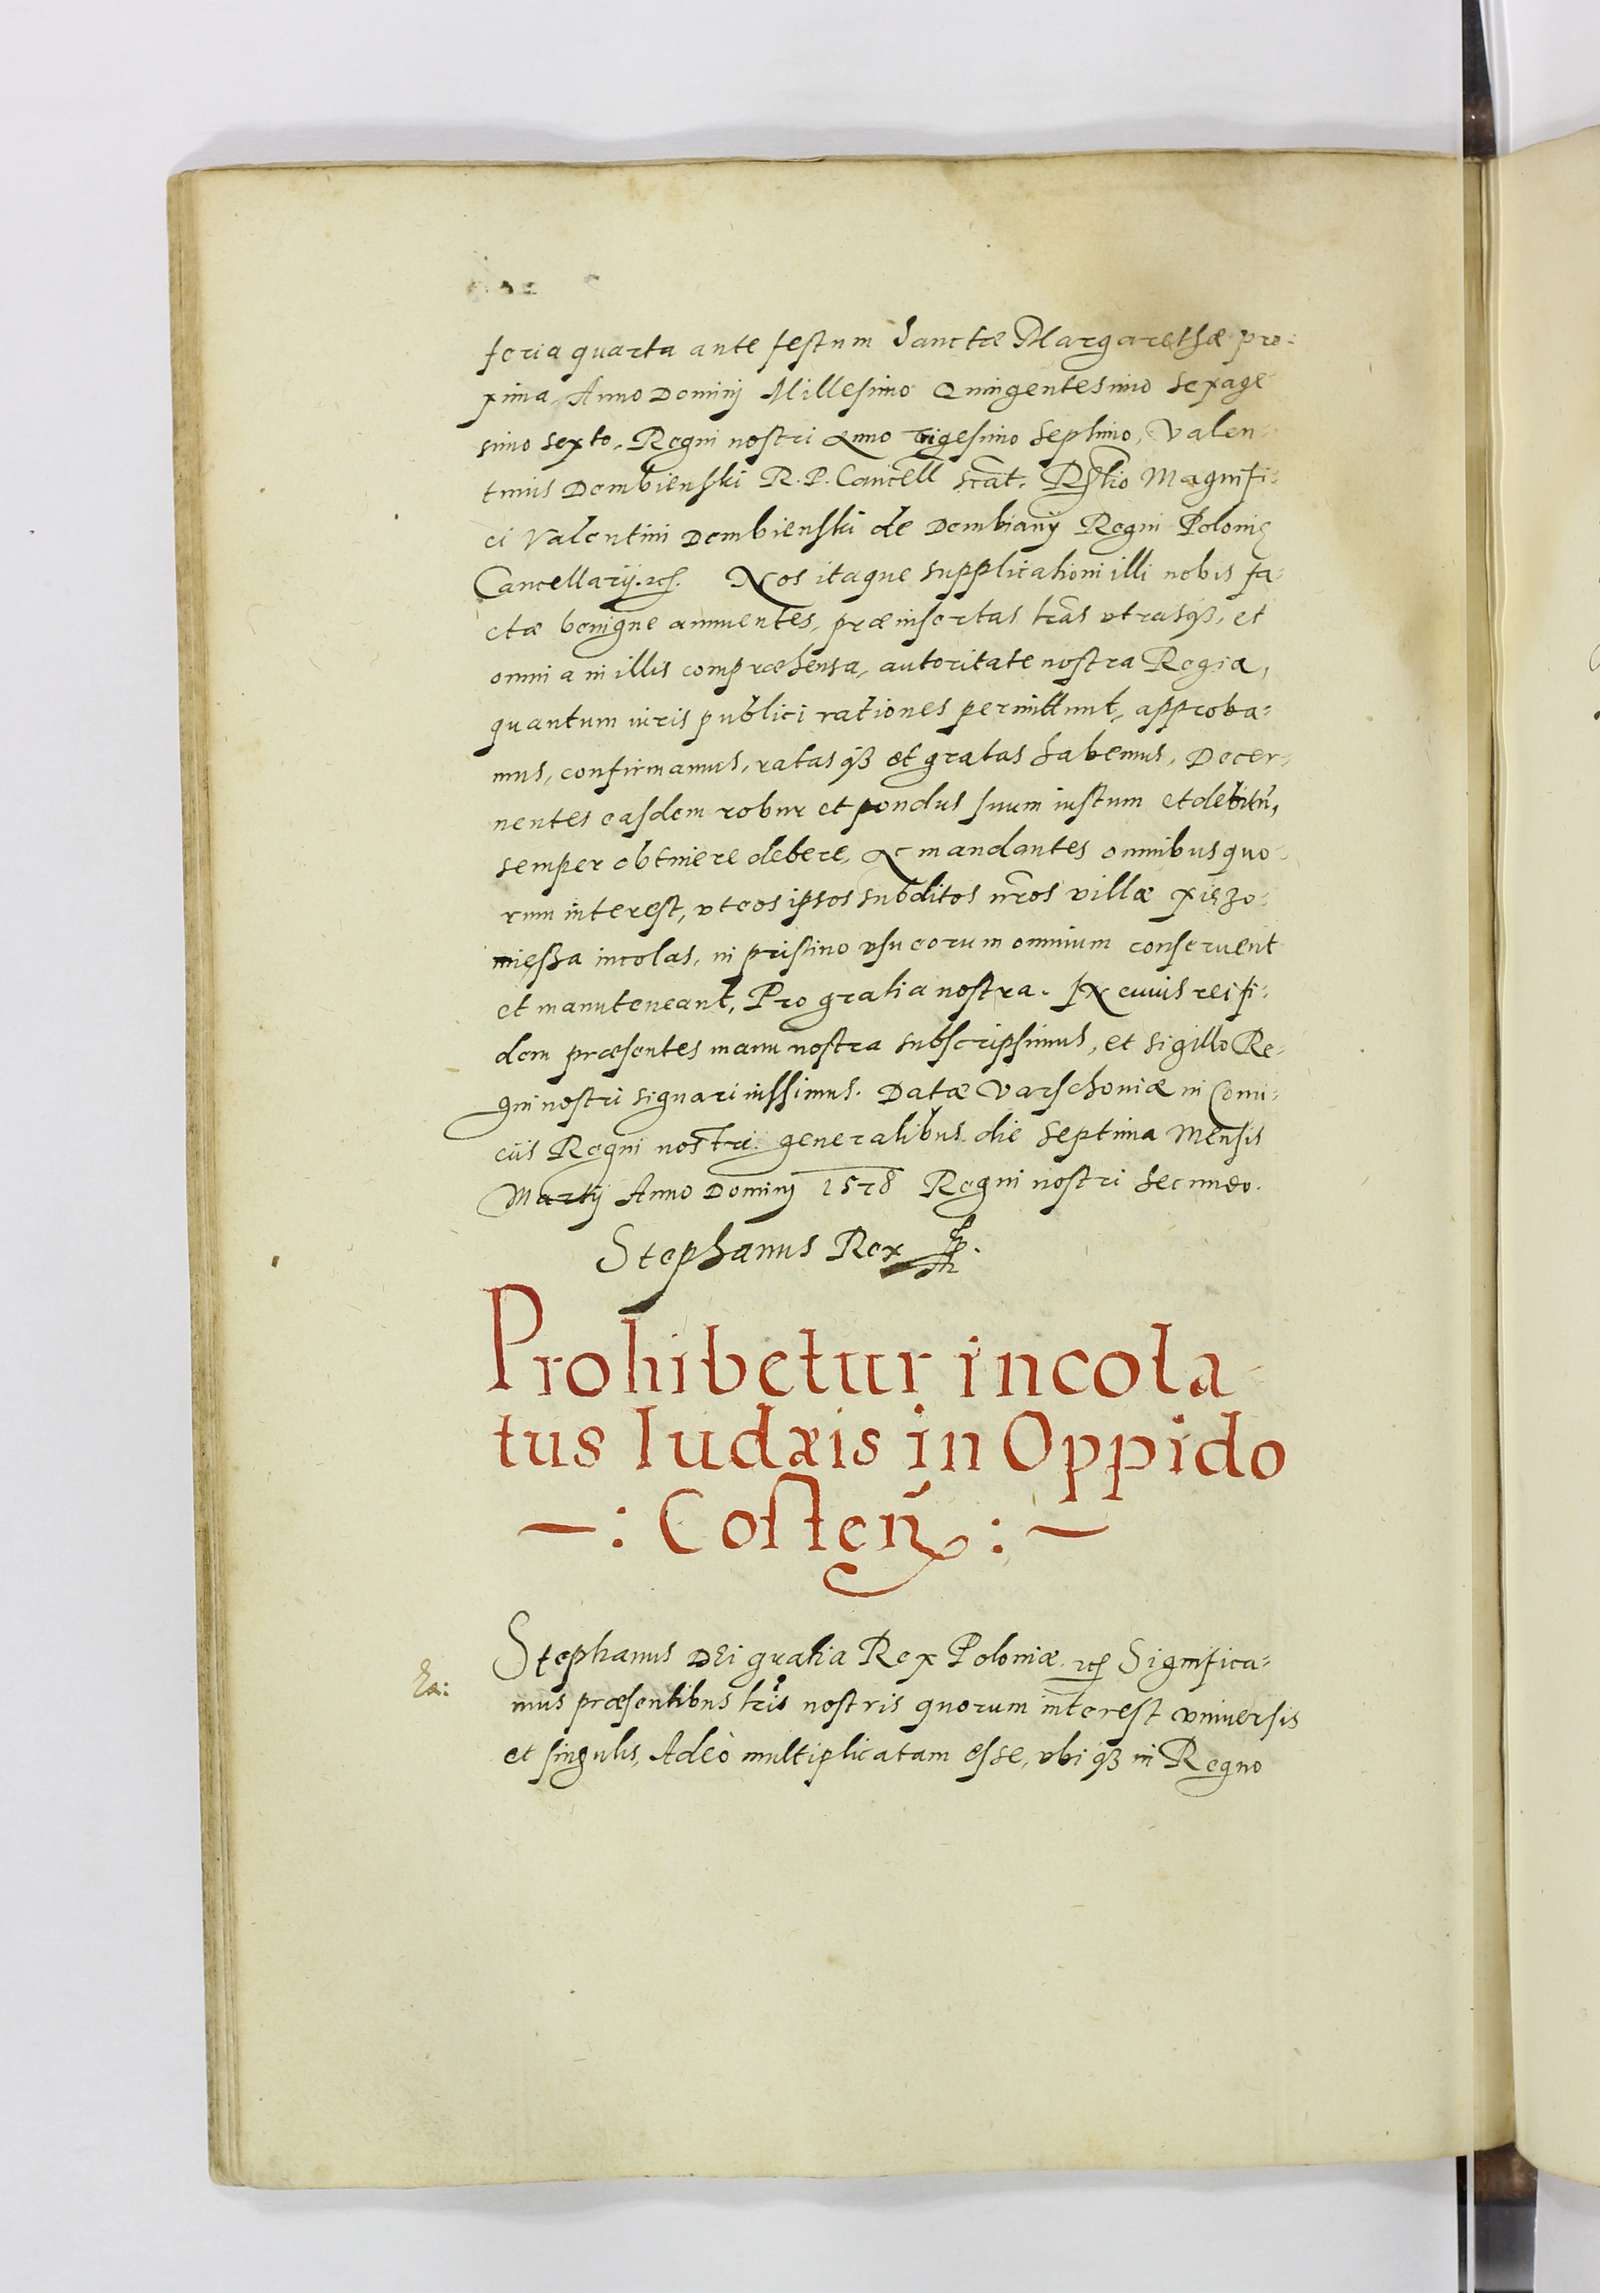 feria quarta ante festum Sanctæ Margarethæ pro-
xima, Anno Dominij Millesimo Quingentesimo Sexage
simo sexto. Regni nostri Anno Trigesimo Septimo, Valen-
tinus Dembienski R. P. Cancell scat. Relio Magnifi-
ci Valentini Dembienski de Dembiany Regni Polonię
Cancellarij. etc. Nos itaque supplicationi illi nobis fa-
ctæ benigne annuentes, præinsertas lras utrasq3, et
omnia in illis compræhensa, autoritate nostra Regia,
quantum iuris publici rationes permittunt, approba-
mus, confirmamus, ratasq3 et gratas habemus, Decer-
nentes easdem robur et pondus suum iustum et debitū,
semper obtinere debere, Ac mandantes omnibus quo-
rum interest, vt eos ipsos subditos nros villæ
incolas, in pristino vsu eorum omnium conseruent
et manuteneant, Pro gratia nostra. In cuius rei fi-
dem præsentes manu nostra subscripsimus, et sigillo Re-
gni nostri signari iussimus. Datæ Varschoniæ in Comi-
ciis Regni nostri generalibus die Septima Mensis
Martij Anno Dominij 1578 Regni nostri Secundo.
Stephanus Rex
Prohibetur incola-
tus Iudæis in Oppido
—: Costeñ :—
Stephanus DEi gratia Rex Poloniæ etc Significa-
mus præsentibus lris nostris quorum interest vniuersis
et singulis, Adeò multiplicatam esse, vbiq3 in Regno